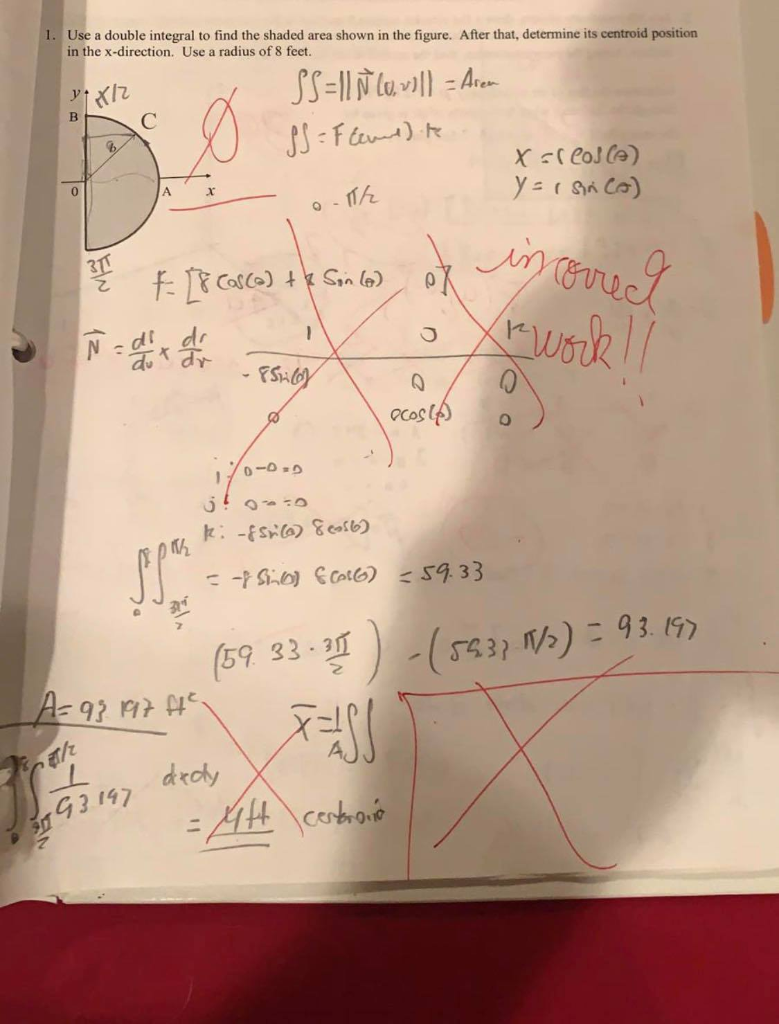 1. Use a double integral to find the shaded area shown in the figure. After that, determine its centroid position
in the x-direction. Use a radius of 8 feet.
∬ = ||N⃗(u,v)|| = Area
y π/2
B C
8
0 A x
∬ = F(curl)·k
x = r cos(θ)
y = r sin(θ)
0 - π/2
3π/2
F = [8 cos(θ) + 8 Sin(θ) 0]
incorrect
work!!
N⃗ = dr/du × dr/dv
1 0 k
-8Sin(θ) 0 0
0 8cos(θ) 0
i: 0-0=0
j: 0-0=0
k: -8sin(θ) 8cos(θ)
∫₀⁸∫_{3π/2}^{π/2} = -8 Sin(θ) 8cos(θ) = 59.33
(59.33 · 3π/2) - (59.33 π/2) = 93.197
A = 93.197 ft²
x̄ = 1/A ∬
∫₀⁸∫_{3π/2}^{π/2} 1/93.197 dxdy
= 4ft centroid